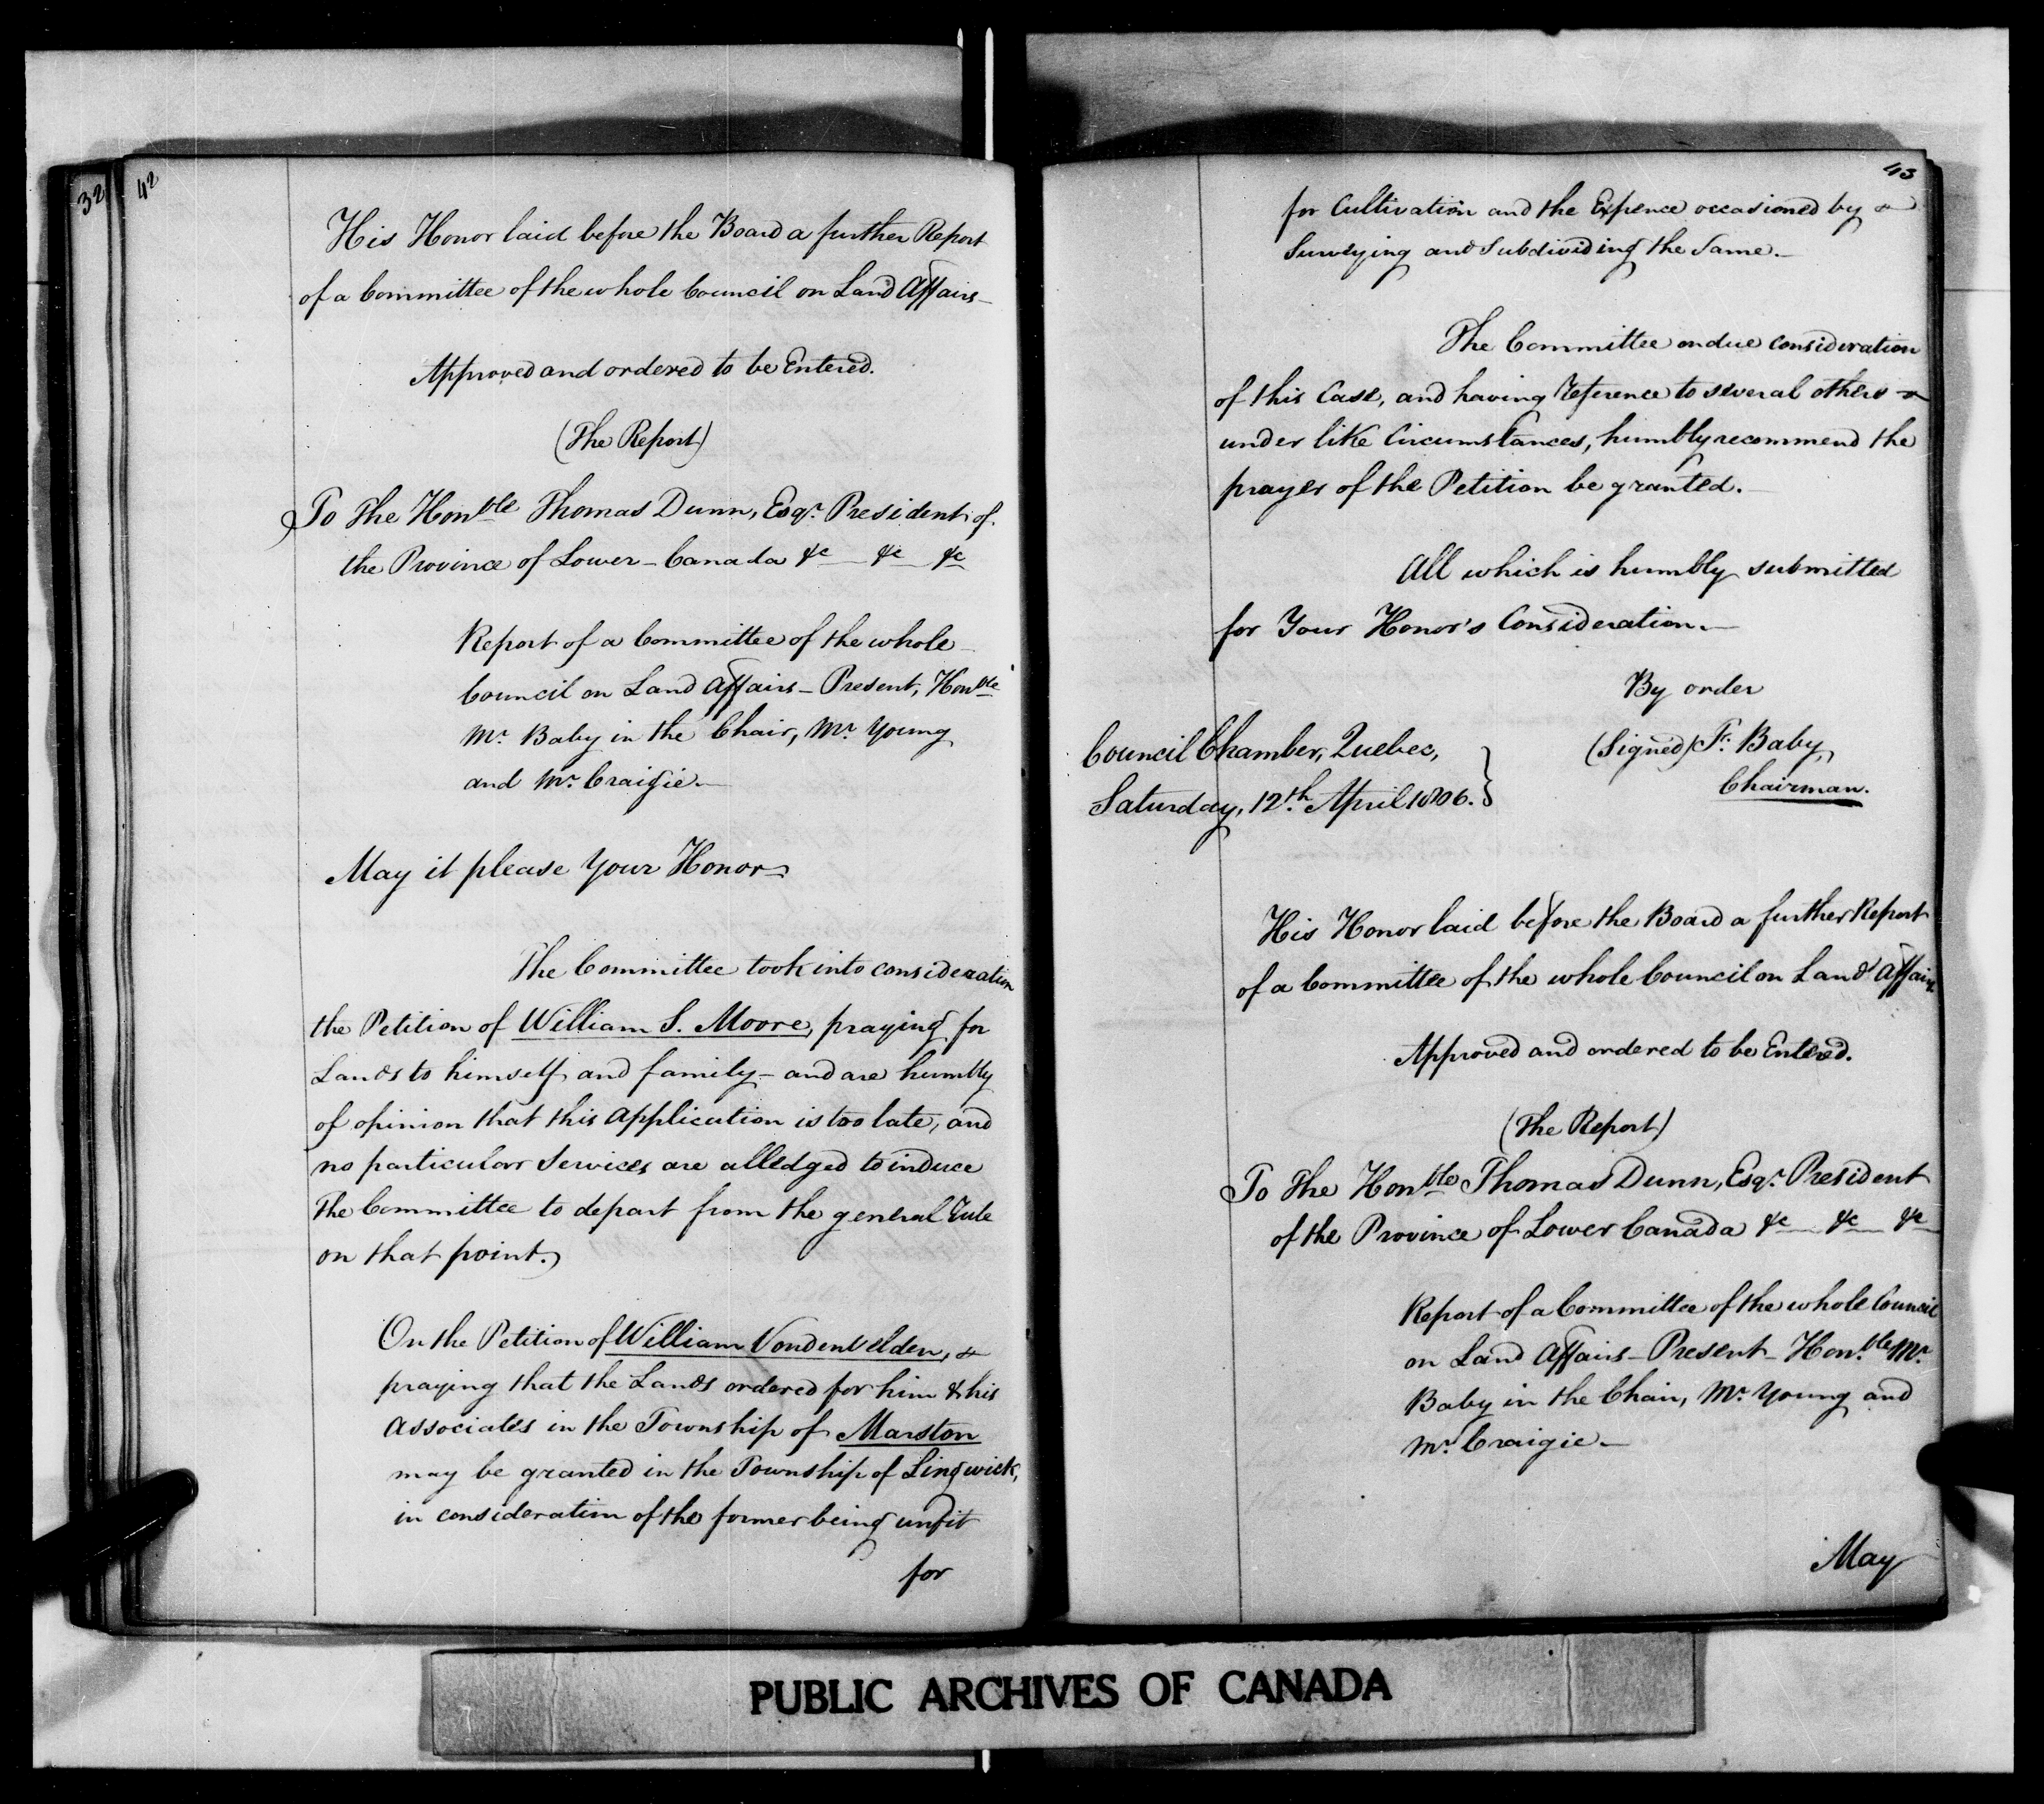 32
42
His Honor laid before the Board a further Report
of a Committee of the whole Council on Land Affairs—
Approved and ordered to be Entered.
(The Report)
To The Honble Thomas Dunn, Esqr. President of
the Province of Lower-Canada &c — &c &c
Report of a Committee of the whole
Council on Land Affairs – Present, Honble
Mr. Baby in the Chair, Mr. Young
and Mr. Craigie—
May it please Your Honor—
The Committee took into consideration
the Petition of William S. Moore, praying for
Lands to himself and family – and are humbly
of opinion that this Application is too late, and
no particular Services are alledged to induce
The Committee to depart from the general Rule
on that point.
On the Petition of William Vondenvelden,
praying that the Lands ordered for him & his
Associates in the Township of Marston
may be granted in the Township of Lingwick,
in consideration of the former being unfit
for
43
for Cultivation and the Expence occasioned by
Surveying and Subdividing the Same.—
The Committee on due consideration
of this Case, and having reference to several others
under like Circumstances, humbly recommend the
prayer of the Petition be granted.—
All which is humbly submitted
for Your Honor's Consideration.—
By order
(Signed) Fr. Baby,
Chairman.
Council Chamber, Quebec,
Saturday, 12th. April 1806.
His Honor laid before the Board a further Report
of a Committee of the whole Council on Land Affairs
Approved and ordered to be Entered.
(The Report)
To The Honble Thomas Dunn, Esqr. President
of the Province of Lower Canada &c — &c — &c
Report of a Committee of the whole Council
on Land Affairs – Present – Honble Mr.
Baby in the Chair, Mr. Young and
Mr. Craigie—
May
PUBLIC ARCHIVES OF CANADA